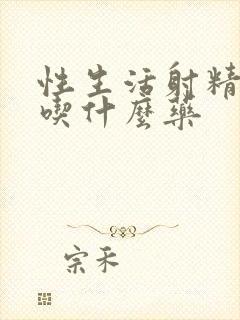 性生活射精
喫什麼藥
宗禾